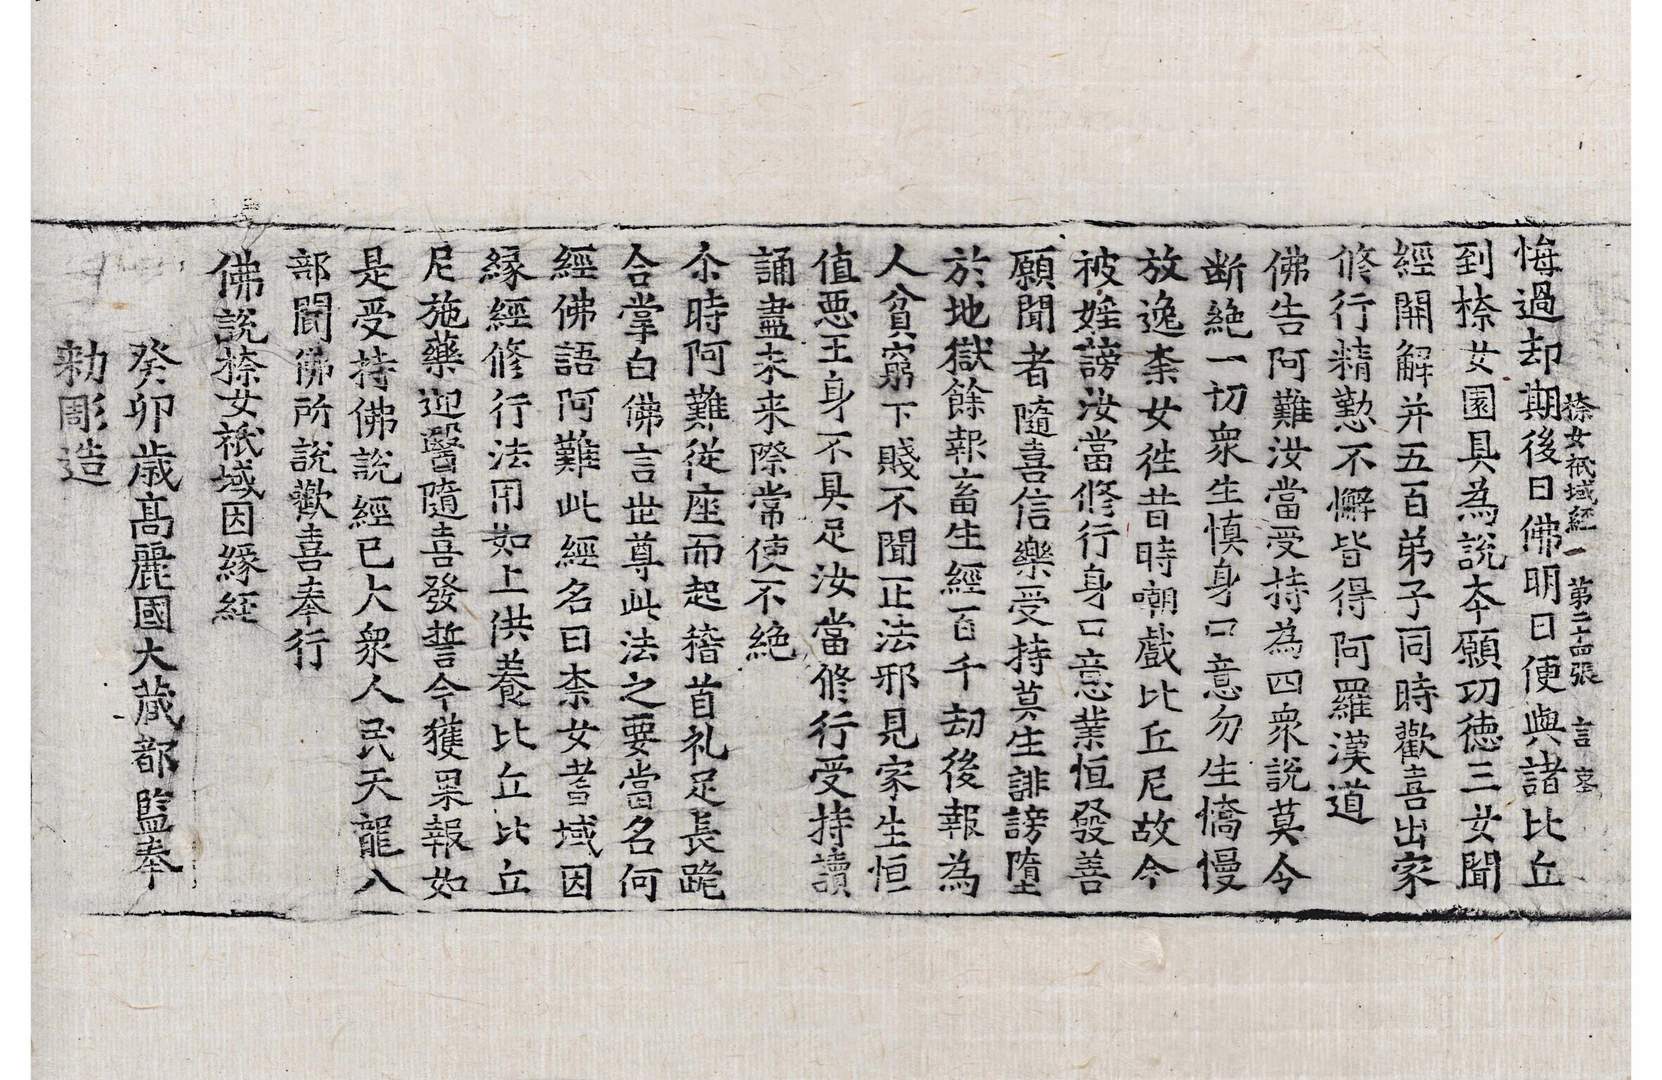 㮈女祇域經一 第二十四張 言
悔過却期後日佛明日便與諸比丘
到㮈女園具為說本願功德三女聞
經開解并五百弟子同時歡喜出家
修行精懃不懈皆得阿羅漢道
佛告阿難汝當受持為四衆說莫令
断絶一切衆生慎身口意勿生憍慢
放逸柰女徃昔時嘲戲比丘尼故今
被婬謗汝當修行身口意業恒發善
願聞者隨喜信樂受持莫生誹謗墮
於地獄餘報畜生經百千劫後報為
人貧窮下賤不聞正法邪見家生恒
值惡王身不具足汝當修行受持讀
誦盡未来際常使不絶
尒時阿難從座而起稽首礼足長跪
合掌白佛言世尊此法之要當名何
經佛語阿難此經名曰柰女耆域因
縁經修行法用如上供養比丘比丘
尼施藥迎醫隨喜發誓今獲果報如
是受持佛說經已大衆人民天龍八
部聞佛所說歡喜奉行
佛說㮈女祇域因縁經
癸卯歳髙麗國大藏都監奉
勑彫造